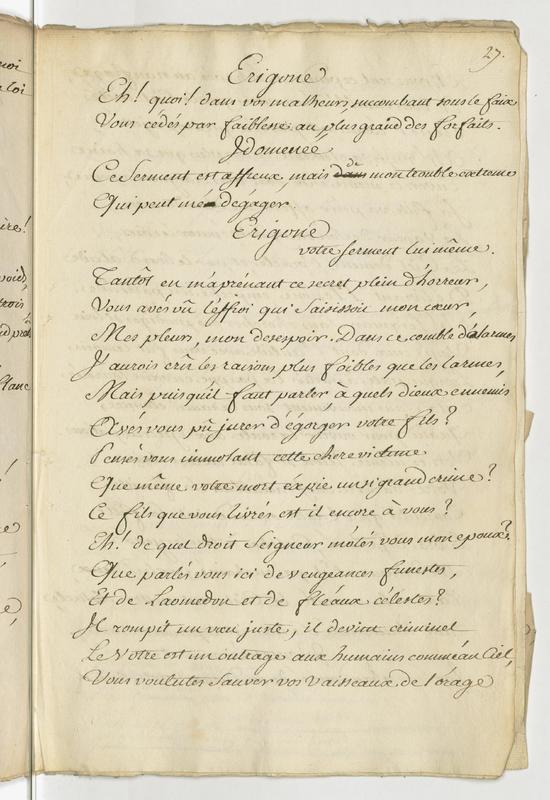 uoi
a loi
ire!
void,
trois
lanc
!
e,
27.
Erigone
Eh! quoi! dans vos malheurs succombant sous le faix
Vous cédés par faiblesse au plus grand des forfaits.
Jdomeneé
Ce Serment est affreux, mais dans mon trouble extreme
Qui peut me dégager.
Erigone
votre serment lui même.
Tantôt en m'aprénant ce secret plein d'horreur,
Vous avés vû l'effroi qui saisissoit mon cœur,
Mes pleurs, mon desespoir. Dans ce comble d'alarmes
J'aurois crû les raisons plus foibles que les larmes,
Mais puisqu'il faut parler à quels dieux ennemis
Avés vous pû jurer d'égorger votre fils?
Pensés vous immolant cette chere victime
Que même votre mort expie un si grand crime?
Ce fils que vous livrés est il encore à vous?
Eh! de quel droit Seigneur m'ôtés vous mon epoux?
Que parlés vous ici de vengeances funestes,
Et de Laomedon et de fléaux célestes?
Il rompit un vœu juste, il devint criminel
Le Votre est un outrage aux humains comme au Ciel,
Vous voulutes sauver vos Vaisseaux de l'orage